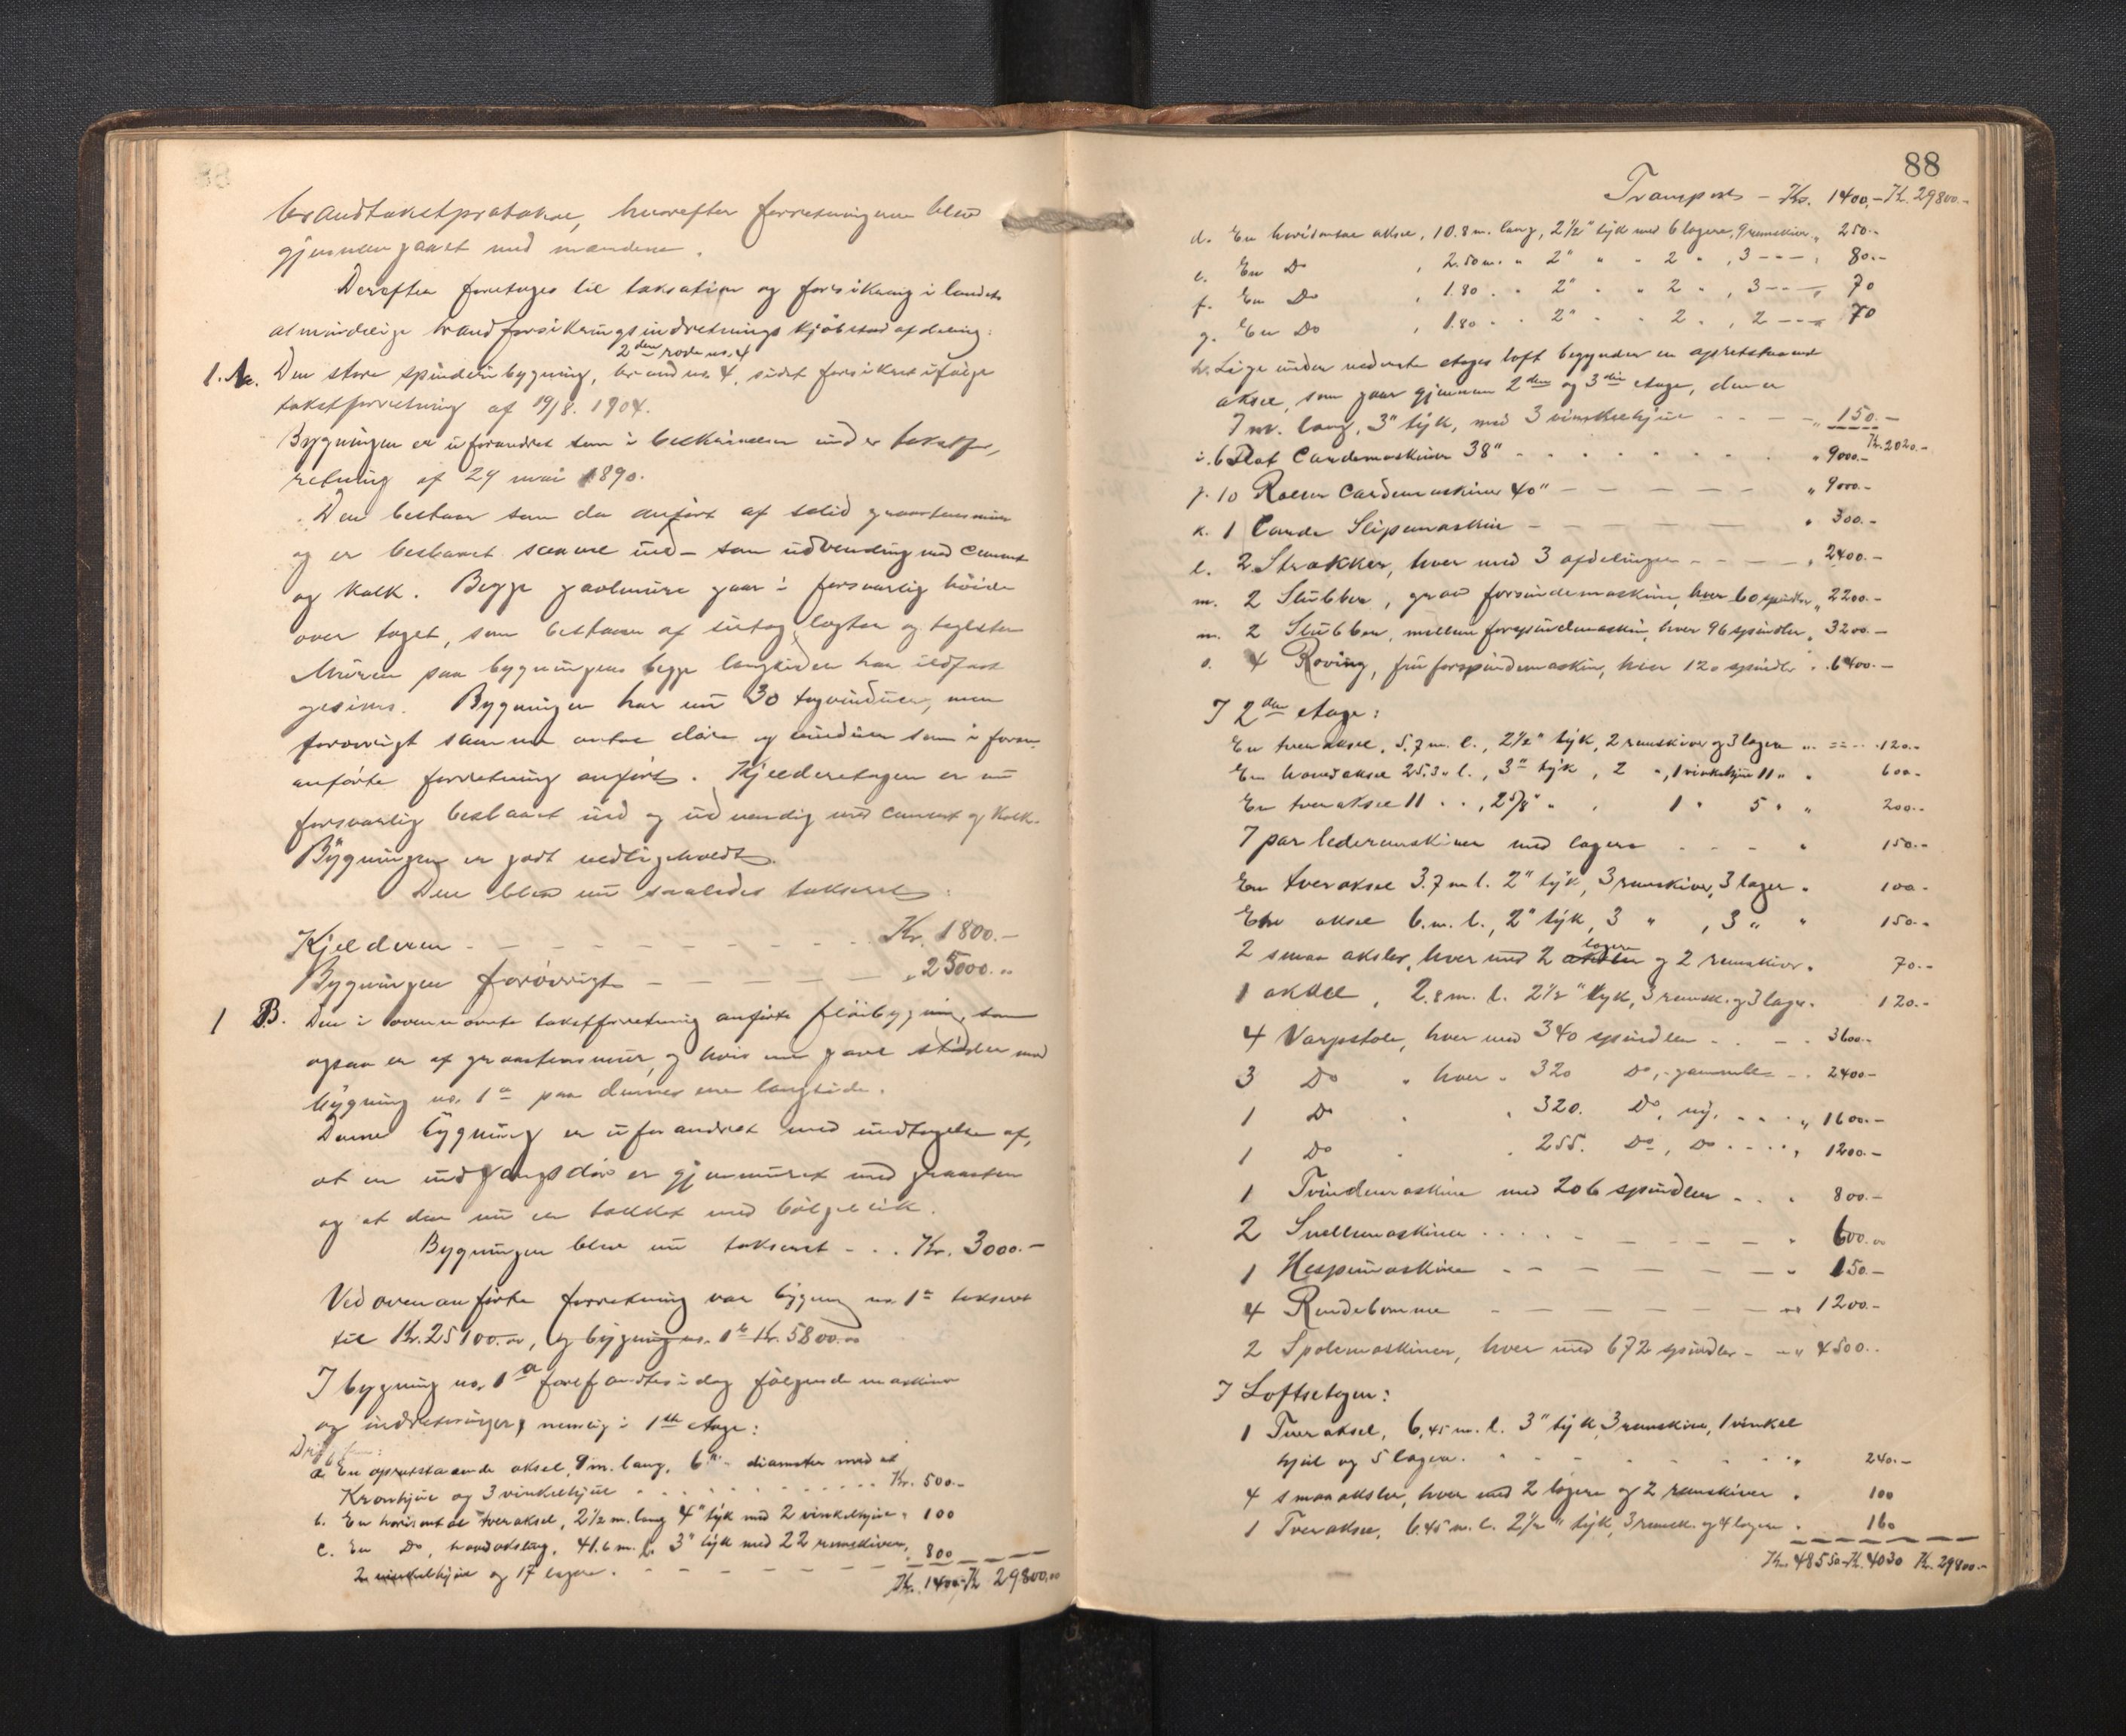 brandtakstprotokol, hvorefter forretningerne blev
gjennemgaaet med mændene.
Derefter foretoges til taksation og forsikring i landets
almindelige brandforsikringsindretnings kjöbstad afdeling:
2den rode no. 4
1. A. Den store spinderibygning, brand no. 4, sidst forsikret ifölge
takstforretning af 19/8. 1904.
Bygningen er uforandret som i beskrivelsen under takstfor-
retning af 24 mai 1890.
Den bestaar som da anfört af solid graastensmur
og er beslaaet saavel ind- som udvendig med cement
og kalk. Begge gavlmure gaar i forsvarlig höide
over taget, som bestaar af sutag, lægter og teglsten
Muren paa bygningens begge langsider har ildfast
gesims. Bygningen har nu 30 tagvinduer, men
forövrigt samme antal döre og vinduer som i foran
anförte forretning anfört. Kjelderetagen er nu
forsvarlig beslaaet ind og udvendig med cement og kalk.
Bygningen er godt vedligeholdt.
Den blev nu saaledes takseret:
Kjelderen - - - - - Kr. 1800.-
Bygningen forövrigt - - - - „ 25000.-
1 B. Den i ovennævnte takstforretning anförte flöibygning, som
ogsaa er af graastensmur, og hvis ene gavl stöder mod
bygning no. 1a paa dennes ene langside.
Denne bygning er uforandret med undtagelse af,
at en indgangsdör er gjenmuret med graasten
og at den nu er tækket med bölgeblik.
Bygningen blev nu takseret - . . Kr. 3000.-
Ved ovenanförte forretning var bygning no 1a takseret
til Kr. 25100.00, og bygning no. 1b Kr. 5800.00
I bygning no. 1a forefandtes idag fölgende maskiner
og indretninger, nemlig i 1ste etage:
a. En opretstaaende aksel, 9 m. lang, 6" diameter med et
Kronhjul og 3 vinkelhjul . . . . Kr. 500.-
b. En horisontal tveraksel, 2½ m. lang 4" tyk med 2 vinkelhjul „ 100
c. En Do, hovedaksling, 41.6 m. l. 3" tyk med 22 remskiver,
2 vinkelhjul og 17 lagere . - - - - 800
Kr. 1400,- Kr 29800.00
88
Transport - Kr. 1400,- Kr. 29800.-
d. En horisontal aksel, 10.8 m. lang, 2½" tyk med 6 lagere, 9 remskiver „ 250.-
e. En Do , 2.50 m. „ 2" „ „ 2 „ , 3 - - - , 80.-
f. En Do , 1.80 . „ 2" „ „ 2 „ , 3 - - - „ 70
g. En Do , 1.80 „ „ 2" „ „ 2 „ , 2 - - - „ 70
h. Lige under nederste etages loft begynder en opretstaaende
aksel, som gaar gjennem 2den og 3die etage, den er
7 m. lang, 3" tyk, med 3 vinkelhjul - - - - „ 150.-
Kr. 2020.-
i. 6 Flat Cardemaskiner 38" - . . . . . „ 9000.-
j. 10 Roller Cardemaskiner 40" - - - - - „ 9000.-
k. 1 Carde Slipemaskin - - - - - „ 300.-
l. 2 Strækker, hver med 3 afdelinger - - - - - , 2400.-
m. 2 Slubber, grov forspindemaskine, hver 60 spindler „ 2200.-
n. 2 Slubber, mellem forspindemaskin, hver 96 spindler „ 3200.-
o. 4 Roving, fin forspindemaskin, hver 120 spindler „ 6400.-
I 2den etage:
En tveraksel, 5,7 m. l., 2½" tyk, 2 remskiver og 3 lagere „ 120.-
En hovedaksel 25,3 „ l., 3" tyk, 2 „ , 1 vinkelhjul 11 „ „ 600.-
En tveraksel 11 „ „ , 2⅝" „ „ 1 „ 5 „ „ 200.-
7 par lederemskiver med lagere . - - „ 150.-
En tveraksel 3.7 m l. 2" tyk, 3 remskiver, 3 lager „ 100.-
En aksel 6. m. l., 2" tyk, 3 „ , 3 „ „ 150.-
2 smaa aksler, hver med 2 lagere og 2 remskiver „ 70.-
1 aksel, 2.8 m. l. 2½" tyk, 3 remsk. og 3 lagre . 120.-
4 Varpstole, hver med 340 spindler - . - . 3600.-
3 Do „ hver „ 320 Do, gammel - . 2400.-
1 Do „ „ 320. Do, ny, - . . . „ 1600.-
1 Do „ „ 255. Do, Do . - . . . , 1200.-
1 Tvindemaskine med 206 spindler - . . 800.-
2 Snellemaskiner . . . . - - - - „ 600.00
1 Hespemaskine - - - - - - „ 150.-
4 Rendebomme - - - - - - „ 1200.-
2 Spolemaskiner, hver med 672 spindler - „ 4500.-
I Loftsetagen:
1 Tveraksel, 6,45 m. l. 3" tyk, 3 remskive, 1 vinkel
hjul og 5 lagere. „ - - - - - - „ 240.-
4 smaa aksler, hver med 2 lagere og 2 remskiver „ 100
1 Tveraksel, 6.45 m. l. 2½" tyk, 3 remsk. og 4 lagere . 160
Kr. 48550- Kr. 4030 Kr. 29800.-